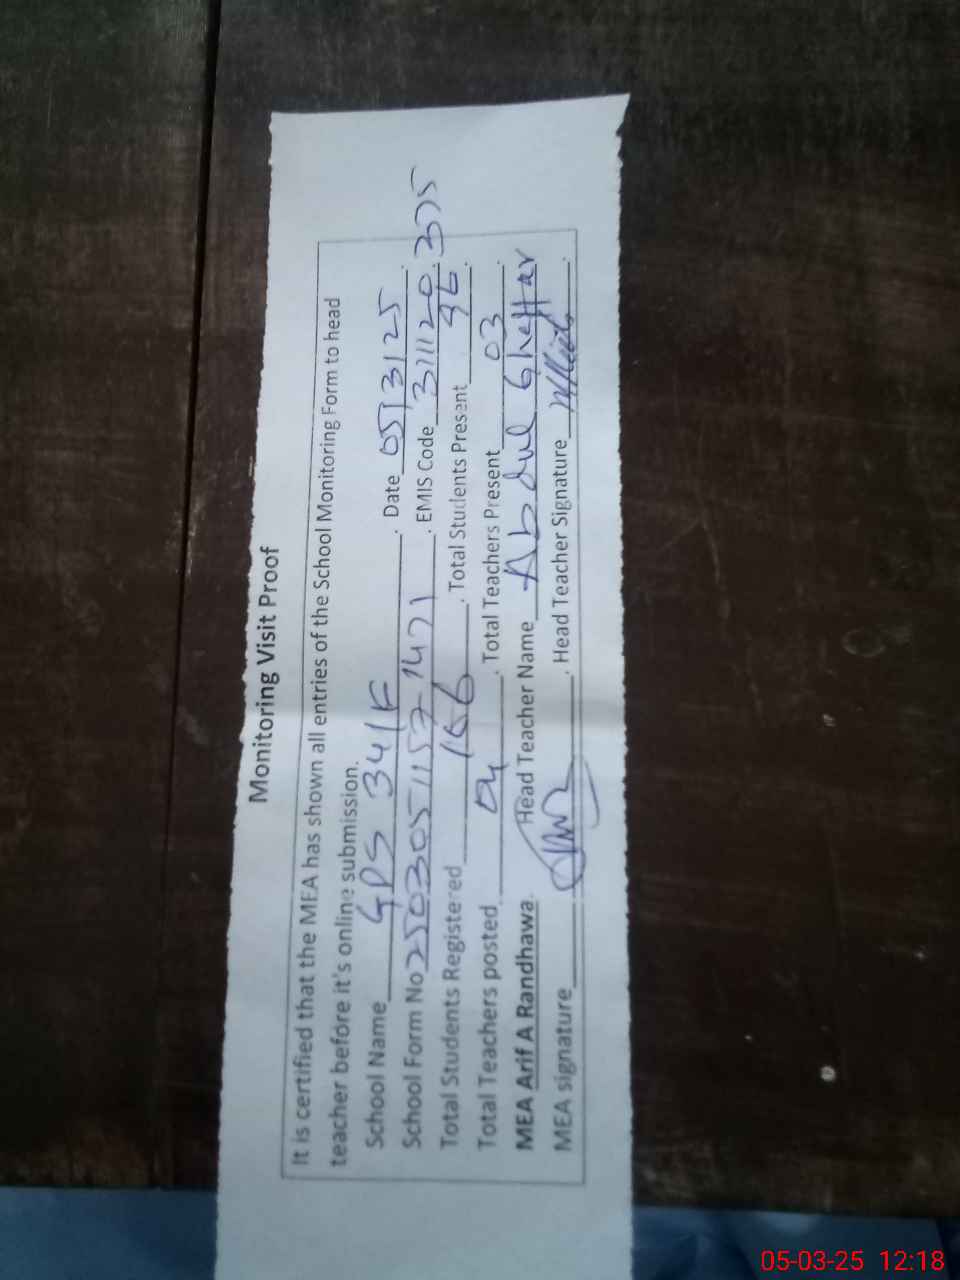 Monitoring Visit Proof
It is certified that the MEA has shown all entries of the School Monitoring Form to head
teacher before it's online submission.
School Name GPS 341E. Date 05/3/25.
School Form No 2503051157-1471. EMIS Code 31112 0.375
Total Students Registered 166. Total Students Present 96.
Total Teachers posted 04. Total Teachers Present 03.
MEA Arif A Randhawa. Head Teacher Name Abdul Ghaffar
MEA signature. Head Teacher Signature.
05-03-25 12:18